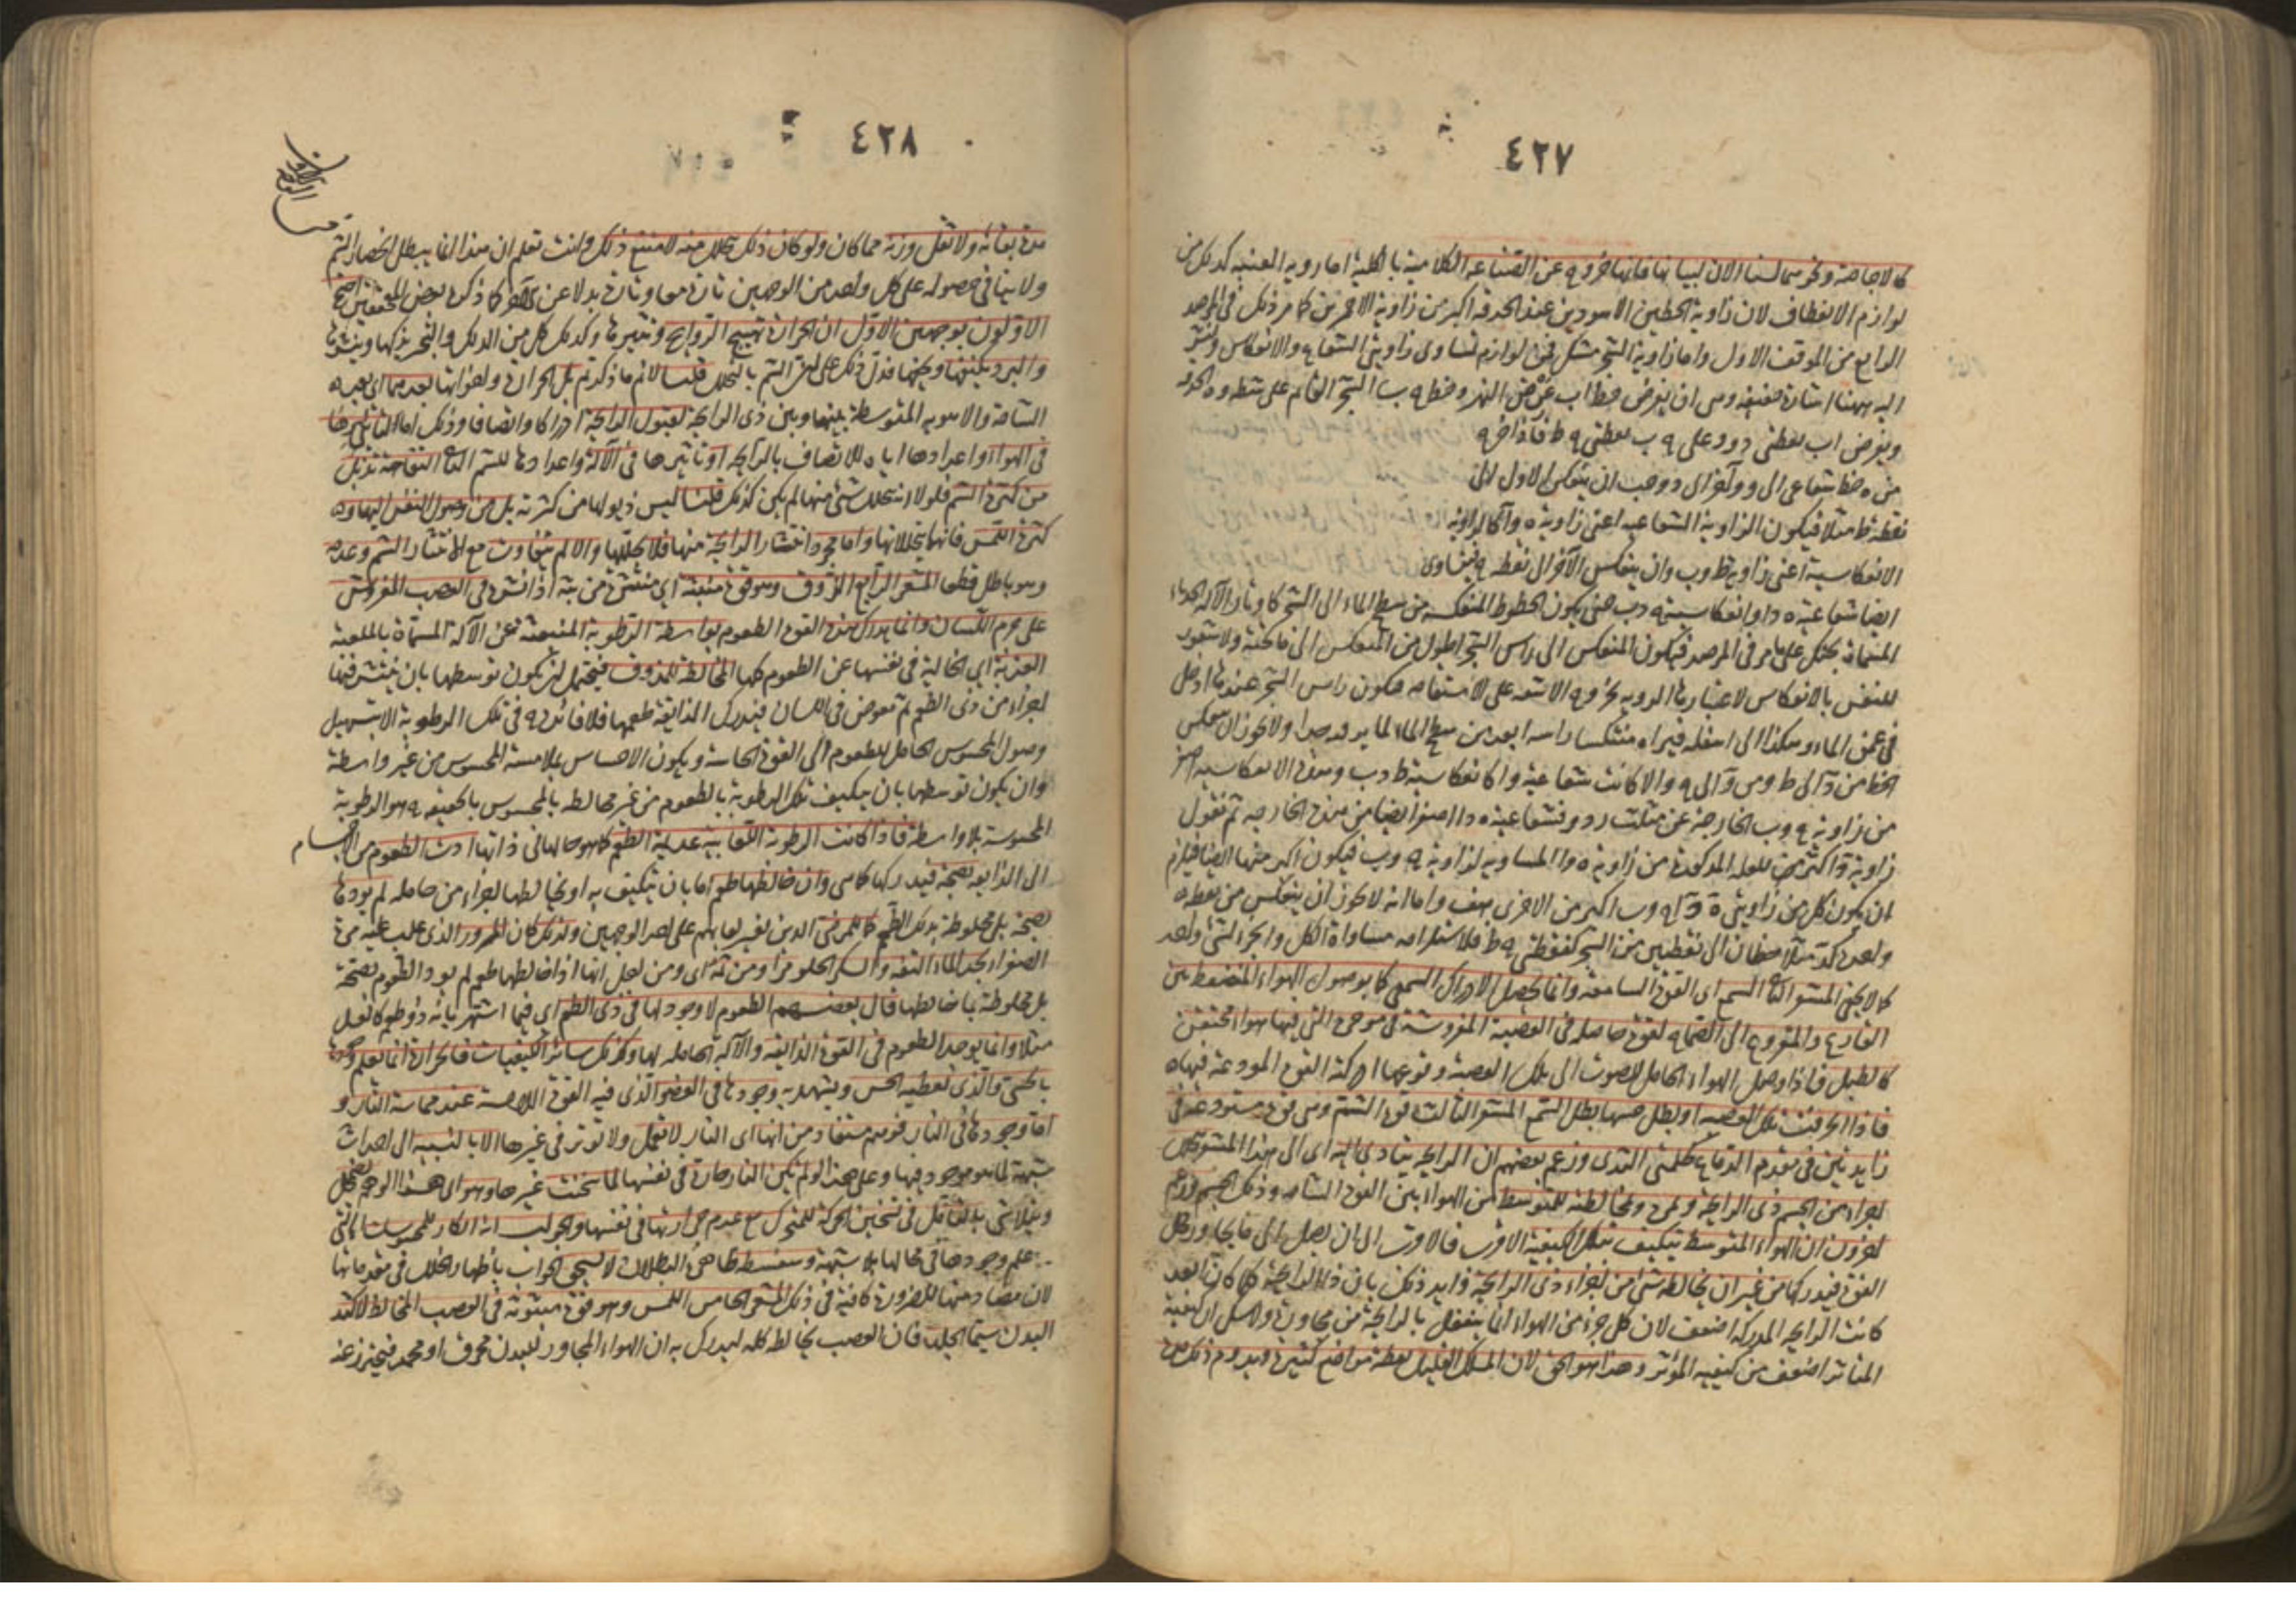 ٤٢٧
كالاجاصة ونحو مما لسنا الآن لبيانها فانها خروج عن الصناعة الكلامية بالكلية اما رؤية العنبة كذلك من
لوازم الانعطاف لان زاوية الخطين الاسودين عند الحدقة اكبر من زاوية الاحمرين كما مر ذلك في المرصد
الرابع من الموقف الاول واما زاوية الشجر لوازم تساوى زاويتى الشعاع والانعكاس ولنشر
اليه ههنا اشارة خفيفة وهى ان نفرض خط اب عرض النهر وخط ج ب الشجر القائم على شطه وه الحدقة
ونفرض اب نقطتى د و وعلى ج ب نقطتى ج ط فاذا خرج
من ه خط شعاعى الى و وآخر الى د وجب ان ينعكس الاول الى
نقطة ط مثلا فيكون الزاوية الشعاعية اعنى زاوية ه و آ كالزاوية
الانعكاسية اعنى زاوية ط و ب وان ينعكس الآخر الى نقطة ج فيتساوى
ايضا شعاعية ه د ا وانعكاسية ج د ب حتى يكون الخطوط المنعكسة من سطح الماء الى الشجر كاوتار الآلة الحدباء
المسماة بجنك على ما مر في المرصد فيكون المنعكس الى راس الشجر اطول من المنعكس الى ما تحته ولا شعور
للنفس بالانعكاس لاعتيارها الروية بخروج الاشعة على الاستقامة فيكون راس الشجر عندها ادخل
في عمق الماء وهكذا الى اسفله فيراه منتكسا راسه ابعد من سطح الماء لما يرفد جدا ولا يجوز ان ينعكس
الخط من د الى ط ومن و الى ج والا كانت شعاعية و ا كانعكاسية ط د ب وهذه الانعكاسية اصغر
من زاوية ج و ب الخارجة عن مثلث ر د و فشعاعية ه د ا اصغر ايضا من هذه الخارجة ثم نقول
زاوية للعلة المذكورة من زاوية ه و ا المساوية لزاوية ج و ب فيكون اكبر منها ايضا فيلزم
ان يكون كل من زاويتى ه و ا ج و ب اكبر من الاخرى هف واما انه لا يجوز ان ينعكس من نقطة
واحدة كد مثلا خطان الى نقطتين من الشجر كنقطتى ج ط فلاستلزامه مساواة الكل والجزء لشئ واحد
كما لا يخفى المشعر الثانى السمع اى القوة السامعة وانما يحصل الادراك السمعى كما بوصول الهواء المنضغط بين
القارع والمقروع الى الصماخ لقوة حاصلة في العصبة المفروشة في مؤخره التى فيها هواء محتقن
كالطبل فاذا وصل الهواء الحامل للصوت الى تلك العصبة وقرعها ادركته القوة المودعة فيها
فاذا انخرقت تلك العصبة او بطل حسها بطل السمع المشعر الثالث قوة الشم وهى قوة مستودعة في
زايدتين في مقدم الدماغ كحلمتى الثدى وزعم بعضهم ان الرايحة يتادى اليه اى الى هذا المشعر بتحلل
اجزاء من الجسم ذى الرايحة وتبخره ومخالطته للمتوسط من الهواء بين القوة الشامة وذلك الجسم وزعم
آخرون ان الهواء المتوسط يتكيف بتلك الكيفية الاقرب فالاقرب الى ان يصل الى ما يجاور محل
القوة فيدركها من غير ان يخالطه شئ من اجزاء ذى الرايحة وايد ذلك بان ذا الرايحة كلما كان ابعد
كانت الرايحة المدركة اضعف لان كل جزء من الهواء انما ينفعل بالرايحة من مجاوره ولا شك ان كيفية
المتاثر اضعف من كيفية المؤثر وهذا هو الحق لان المسك القليل يعطر مواضع كثيرة ويدوم ذلك
٤٢٨
مدة بقائه ولا تقل وزنه عما كان ولو كان ذلك بتحلل منه لامتنع ذلك وانت تعلم ان هذا انما يبطل انحصار الشم
ولا ينافى حصوله على كل واحد من الوجهين تارة معا وتارة بدلا عن الآخر كما ذكره بعض المحققين احتج
الاولون بوجهين الاول ان الحرارة تهيج الروايح وتثيرها وكذلك كل من الدلك والتبخير يذكيها وينشرها
والبرد يكثفها ويخفيها فدل ذلك على ان الشم بالتحلل قلنا لانم ما ذكرتم بل الحرارة واخواتها يعد هما اى يعد
الشامة والاهوية المتوسطة بينهما وبين ذى الرايحة لقبول الرايحة ادراكا واتصافا وذلك اما لتاثيرها
في الهواء واعدادها اياه للاتصاف بالرايحة او تاثيرها في الآلة واعدادها للشم الثانى التفاحة تذبل
من كثرة الشم فلولا انه يتحلل شئ منها لم يكن كذلك قلنا ليس ذبولها من كثرته بل من وصول النفس اليها و
كثرة اللمس فانهما يحللانها واما مجرد انتشار الرايحة منها فلا يحللها والا لم يتفاوت مع الانتشار الشم وعدمه
وهو باطل قطعا المشعر الرابع الذوق وهو قوة منبثة اى منتشرة من بثه اذا نشره في العصب المفروش
على جرم اللسان وانما يدرك هذه القوة الطعوم بواسطة الرطوبة المنبعثة عن الآلة المسماة بالملعبة
العذبة اى الخالية في نفسها عن الطعوم كلها المخالطة للمذوق فيحتمل ان يكون توسطها بان ينتشر فيها
اجزاء من ذى الطعم ثم تغوص في اللسان فيدرك الذائقة طعمها فلا فائدة في تلك الرطوبة الا تسهيل
وصول المحسوس الحامل للطعوم الى القوة الحاسة ويكون الاحساس بملامسة المحسوس من غير واسطة
وان يكون توسطها بان يتكيف تلك الرطوبة بالطعوم من غير مخالطة بالمحسوس بالحقيقة ج هو الرطوبة
المحسوسة بلا واسطة فاذا كانت الرطوبة اللعابية عديمة الطعم كما هو حالها في ذاتها ادت الطعوم من الاجسام
الى الذائقة بصحة فيدركها كما هى وان خالطها طعم اما بان يتكيف به او يخالطها اجزاء من حامله لم يؤدها
بصحة بل مخلوطة بذلك الطعم كما للمرضى الذين تغير لعابهم على احد الوجهين ولذلك كان الممرور الذى غلب عليه مرة
الصفراء يجد الماء التفه والسكر الحلو مرا ومن ثمه اى ومن اجل انها اذا خالطها طعم لم يود الطعوم بصحة
بل مخلوطة بما خالطها قال بعضهم الطعوم لا وجود لها في ذى الطعم اى فيما اشتهر بانه ذو طعم كالعسل
مثلا وانما يوجد الطعوم في القوة الذائقة والآلة الحاملة لها وكذلك سائر الكيفيات فالحرارة انما يعلم وجودها
بالحس والذى يعطيه الحس ويشهد به وجودها في العضو الذى فيه القوة اللامسة عند مماسة النار و
اما وجودها في النار فوهم مستفاد من انها اى النار لا تفعل ولا تؤثر في غيرها الا بالنسبة الى احداث
شبهة لما هو موجود فيها وعلى هذا لو لم يكن النار حارة في نفسها لما سخنت غيرها وهو اى هذا الوهم يضمحل
ويتلاشى بالتامل في تسخين الحركة للمتحرك مع عدم حرارتها في نفسها والجواب انه انكار للمحسوسات التى
علم وجودها في محالها بلا شبهة وسفسطة ظاهرة البطلان لا يستحق الجواب باظهار الخلل في مقدماتها
لان مصادمتها للضرورة كافية في ذلك المشعر الخامس اللمس وهو قوة مبثوثة في العصب المخالط لاكثر
البدن سيما الجلد فان العصب يخالط كله ليدرك به ان الهواء المجاور للبدن محرق او مجمد فيتحرز عنه